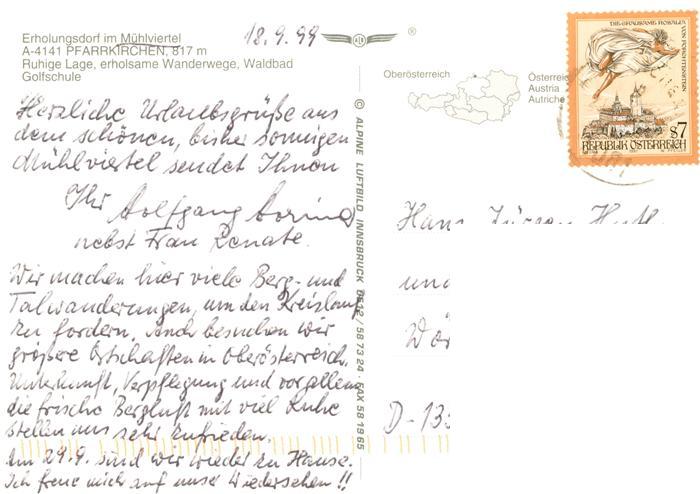 Erholungsdorf im Mühlviertel
A-4141 PFARRKIRCHEN, 817 m
Ruhige Lage, erholsame Wanderwege, Waldbad
Golfschule
18.9.99
®
Oberösterreich
Österreich
Austria
Autriche
DIE GRAUSAME ROSALIA
VON FORCHTENSTEIN
S7
REPUBLIK ÖSTERREICH
Herzliche Urlaubsgrüße aus
dem schönen, bisher sonnigen
Mühlviertel sendet Ihnen
Ihr Wolfgang
nebst Frau Renate.
Wir machen hier viele Berg- und
Talwanderungen, um den Kreislauf
zu fordern. Auch besuchen wir
größere Ortschaften in Oberösterreich.
Unterkunft, Verpflegung und vor allem
die frische Bergluft mit viel Ruhe
stellen uns sehr zufrieden.
Am 29.9. sind wir wieder zu Hause.
Ich freue mich auf unser Wiedersehen!!
© ALPINE LUFTBILD INNSBRUCK 0512/58 73 24 · FAX 58 19 65
Hans Jürgen
und
D-13